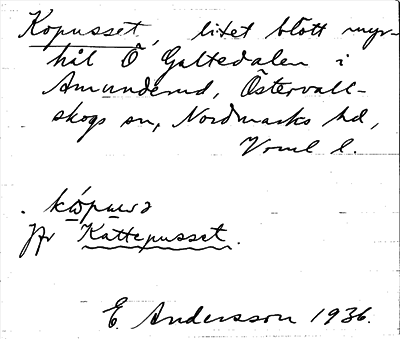 Kopusset, litet blött myr-
hål Ö Galtedalen i
Amunderud, Östervall-
skogs sn, Nordmarks hd,
Vrml l.
. kω̄́pusə
Jfr Kattepusset.
E. Andersson 1936.